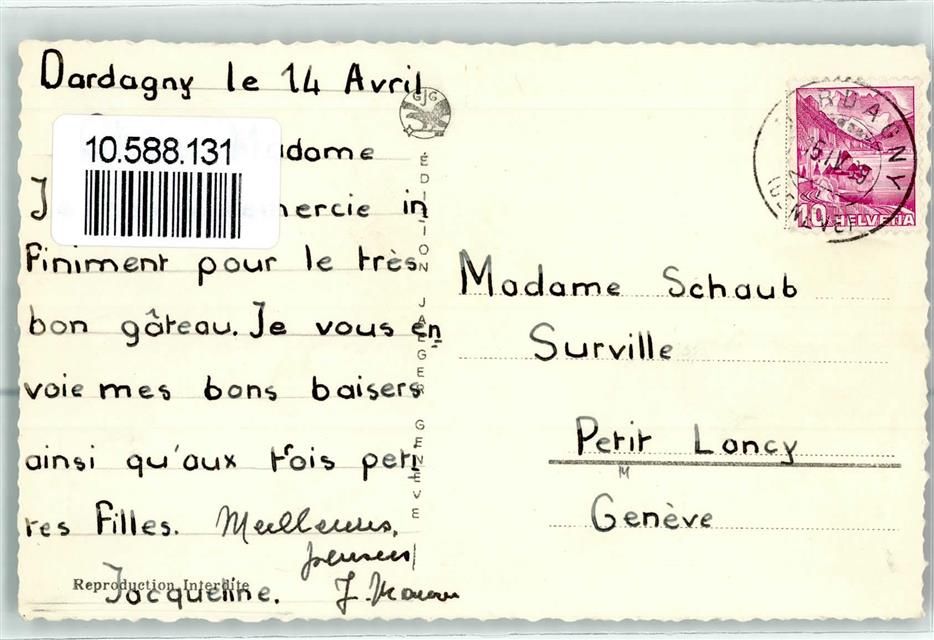 Dardagny le 14 Avril
10.588.131
adame
J ercie in
finiment pour le très
bon gâteau. Je vous en
voie mes bons baisers
ainsi qu'aux trois peti
tes filles. Meilleures
pensees
Jacqueline.
Reproduction Interdite
GJG
ÉDITION JAEGER GENÈVE
DARDAGNY
(GENÈVE)
10 HELVETIA
Madame Schaub
Surville
Petit Lancy
Genève